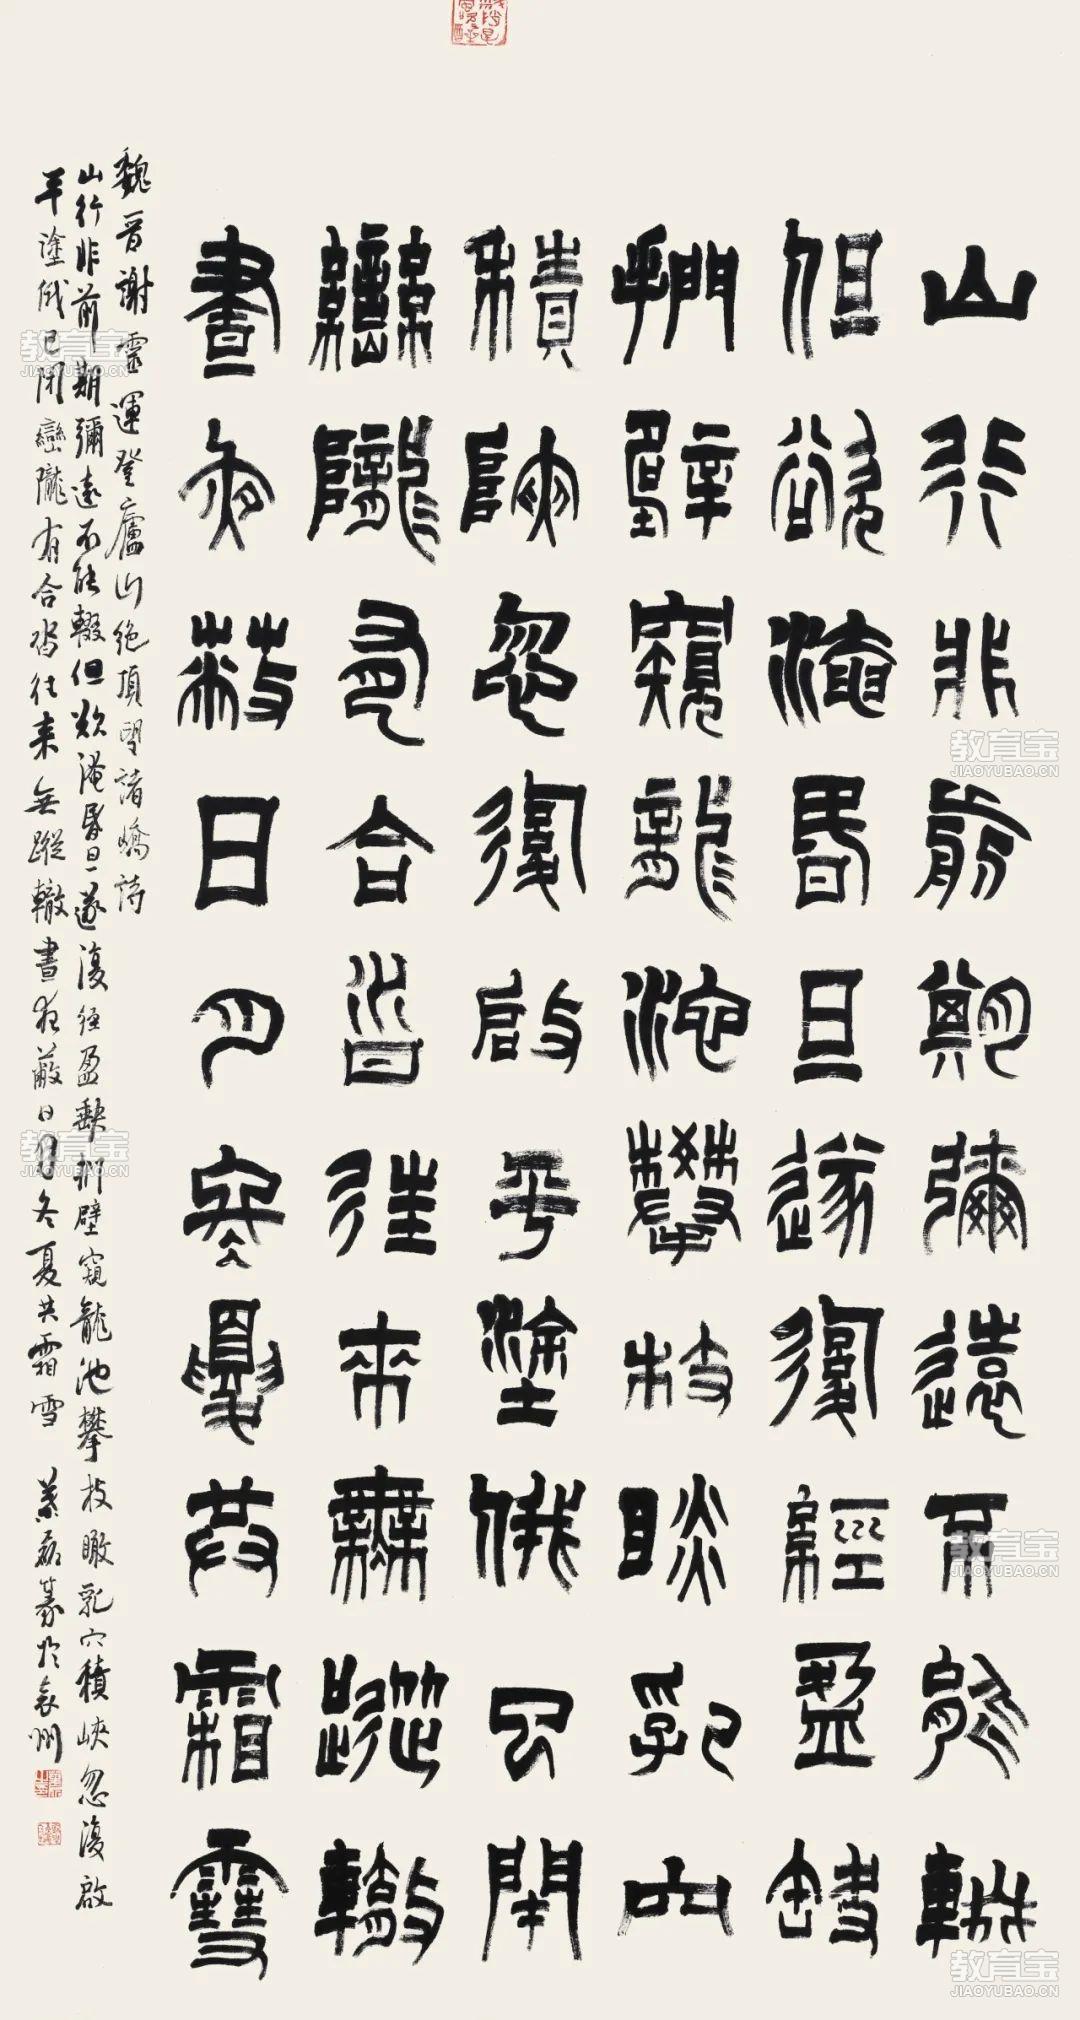 山行非前期彌遠不能輟
但欲淹昏旦遂復經盈缺
捫壁窺龍池攀枝瞰乳穴
積峽忽復啟平塗俄已閉
巒隴有合沓往來無蹤轍
晝夜蔽日月冬夏共霜雪
魏晉謝靈運登廬山絕頂望諸嶠詩
山行非前期彌遠不能輟但欲淹昏旦遂復經盈缺捫壁窺龍池攀枝瞰乳穴積峽忽復啟
平塗俄已閉巒隴有合沓往來無蹤轍晝夜蔽日月冬夏共霜雪 葉磊篆於袁州
教育宝
JIAOYUBAO.CN
教育宝
JIAOYUBAO.CN
教育宝
JIAOYUBAO.CN
教育宝
JIAOYUBAO.CN
教育宝
JIAOYUBAO.CN